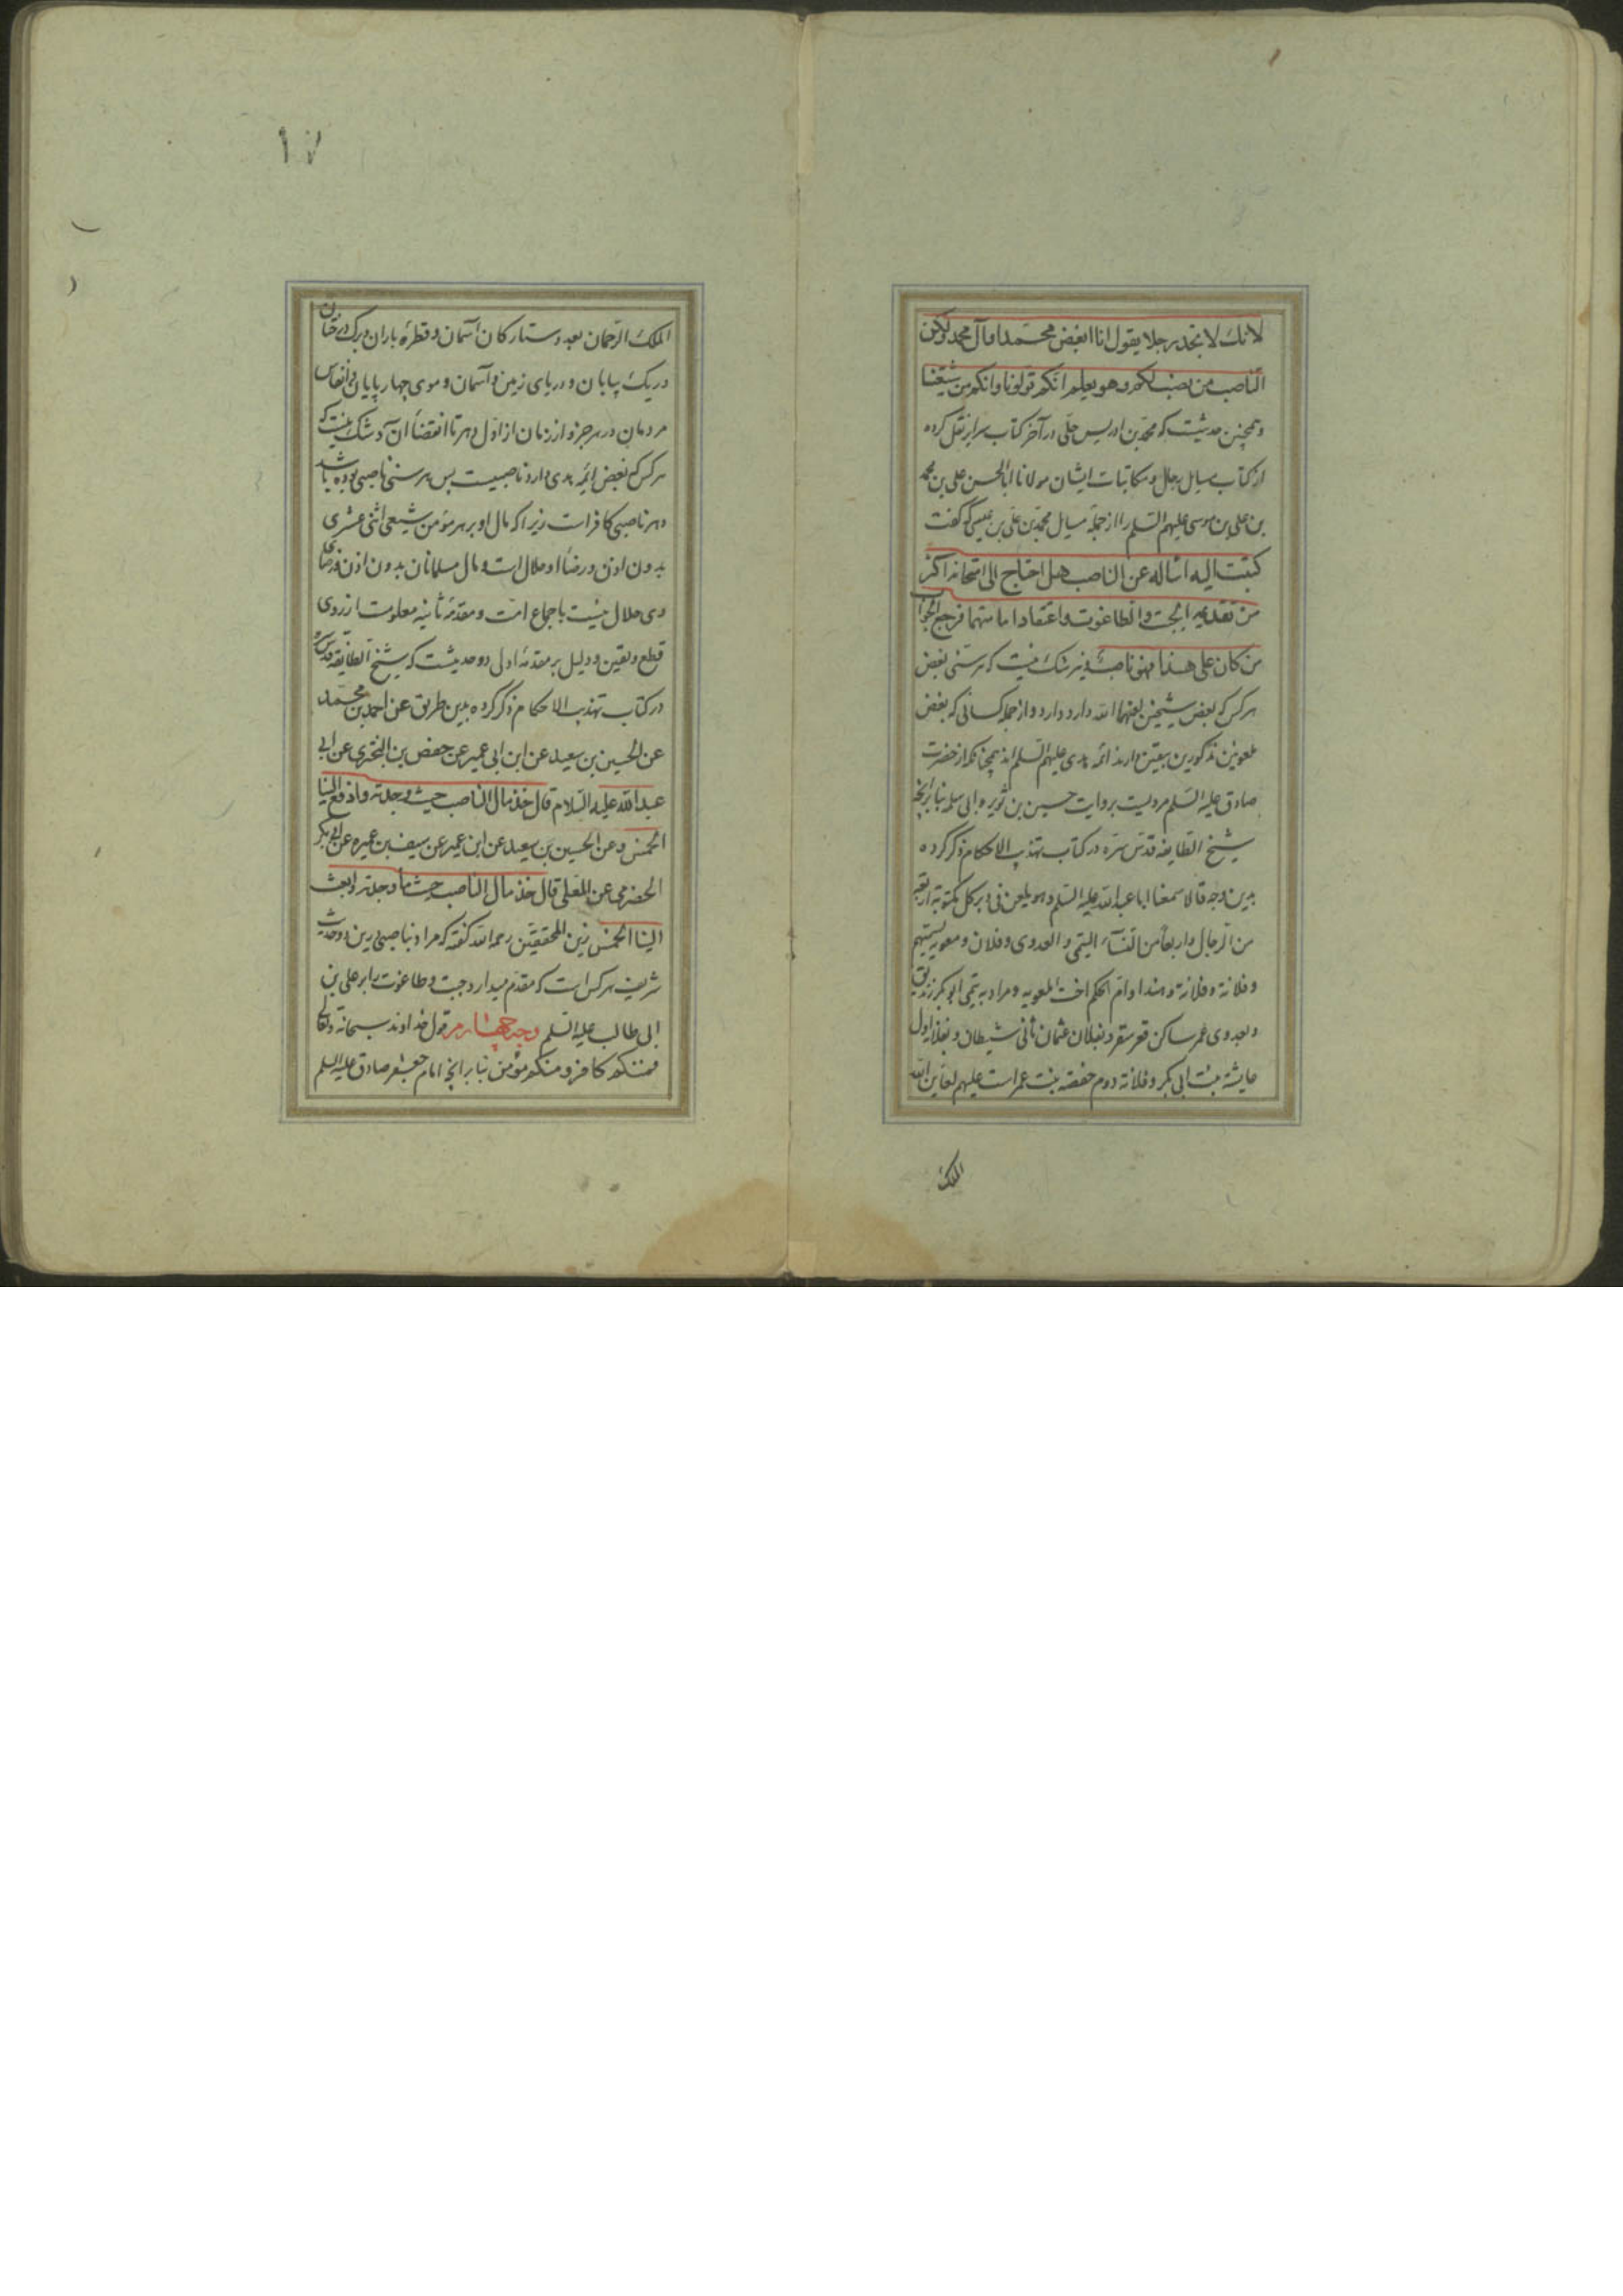 لانك لا تجد رجلا يقول انا ابغض محمدا و آل محمد ولكن
الناصب من نصب لكم و هو يعلم انكم تولونا و انكم من شيعتنا
و همچنين حديثيست كه محمد بن ادريس حلی در آخر كتاب سراير نقل كرده
از كتاب مسايل رجال و مكاتبات ايشان مولانا ابا الحسن علی بن محمد
بن علی بن موسی عليهم السلم را از جمله مسايل محمد بن علی بن عيسی كه گفت
كتبت اليه اساله عن الناصب هل احتاج الی امتحانه اكثر
من تقديمه الجبت و الطاغوت و اعتقاد امامتهما فرجع الجواب
من كان علی هذا فهو ناصب و نيز شك نيست كه هر سنی بغض
هر كس كه بغض شيخين لعنهما الله دارد دارد و از جمله كسانی كه بغض
ملعونين مذكورين بيقين دارند ائمه هدی عليهم السلم اند همچنانكه از حضرت
صادق عليه السلم مرويست بروايت حسين بن ثوير و ابی سلمه بنا بر آنچه
شيخ الطايفه قدس سره در كتاب تهذيب الاحكام ذكر كرده
بدين وجه قالا سمعنا ابا عبد الله عليه السلم و هو يلعن فی دبر كل مكتوبة اربعة
من الرجال و اربعا من النسآء التيمی و العدوی و فلان و معويه يسميهم
و فلانة و فلانة و هندا و ام الحكم اخت المعويه و مراد به تيمی ابو بكر زنديق
و بعدوی عمر ساكن قعر سقر و بفلان عثمان ثانی شيطان و بفلانه اول
عايشه بنت ابی بكر و فلانة دوم حفصه بنت عمر است عليهم لعاين الله
الملك
١٧
الملك الرحمان بعدد ستاركان آسمان و قطره باران و برگ درختان
و ريك بيابان و دريای زمين و آسمان و موی چهار پايان و انفاس
مردمان در هر جزو از زمان از اول دهر تا انقضاء آن و شك نيست كه
هر كس كه بغض ائمه هدی دارد ناصبيست پس هر سنی ناصبی بوده باشد
و هر ناصبی كافر است زيرا كه مال او بر هر مومن شيعی اثنی عشری
بدون اذن و رضاء او حلال است و مال مسلمانان بدون اذن و رضای
وی حلال نيست باجماع امت و مقدمه ثانيه معلومست از روی
قطع و يقين و دليل بر مقدمه اولی دو حديثست كه شيخ الطايفه قدس سره
در كتاب تهذيب الاحكام ذكر كرده بدين طريق عن احمد بن محمد
عن الحسين بن سعيد عن ابن ابی عمير عن حفص بن البختری عن ابی
عبد الله عليه السلام قال خذ مال الناصب حيث وجدته و ادفع الينا
الخمس و عن الحسين بن سعيد عن ابن عمير عن سيف بن عميره عن ابی بكر
الحضرمی عن المعلی قال خذ مال الناصب حيث ما وجدته و ابعث
الينا الخمس زين المحققين رحمه الله كفته كه مراد بناصبی درين دو حديث
شريف هر كس است كه مقدم ميدارد جبت و طاغوت را بر علی بن
ابی طالب عليه السلم وجه چهارم قول خداوند سبحانه و تعالی
فمنكم كافر و منكم مؤمن بنا بر آنچه امام جعفر صادق عليه السلم